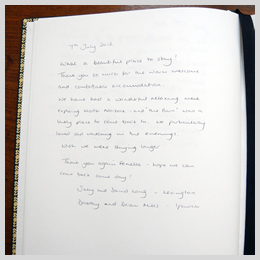 7th July 2012
What a beautiful place to stay!
Thank you so much for the warm welcome
and comfortable accommodation.
We have had a wonderful week
exploring North and 'The Barn' was a
lovely place to come back to. We particularly
loved walking in the evenings.
Wish we were staying longer.
Thank you again - hope we can
come back some day!
and David -
and Brian - Ipswich